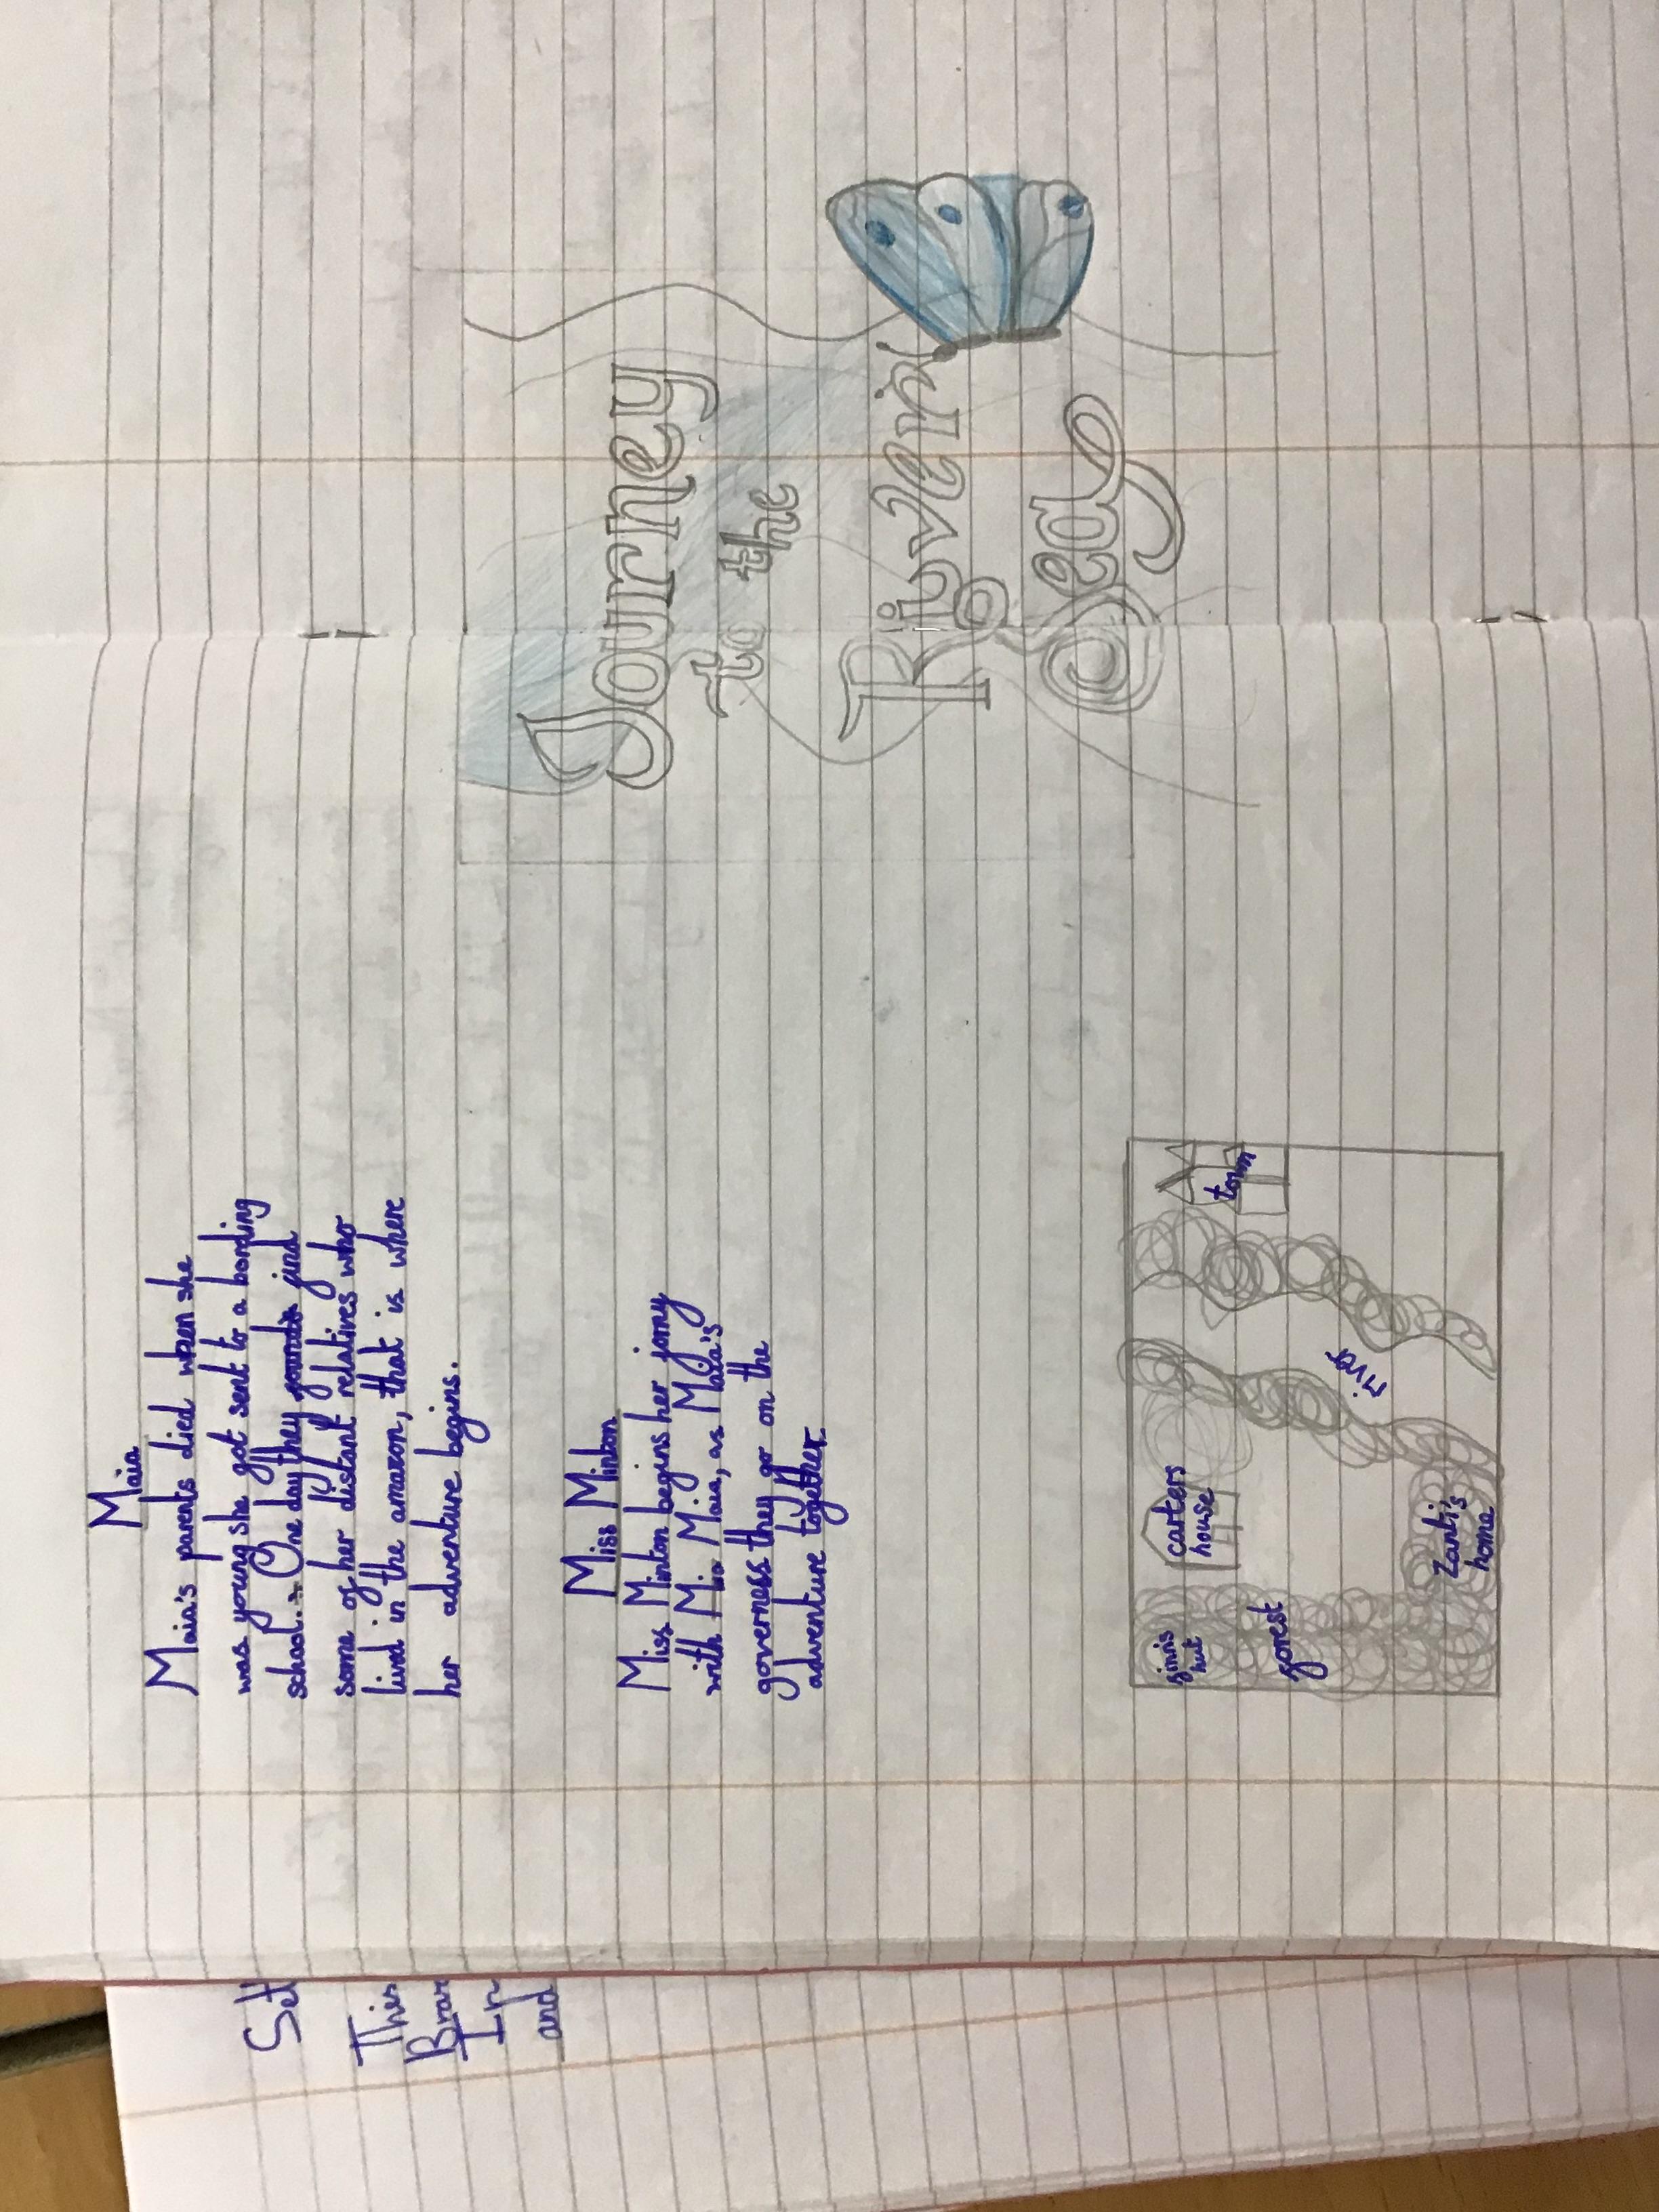 Maia
Maia's parents died when she
was young she got sent to a bording
school. One day they found find
some of her distant relatives who
lived in the amazon, that is where
her adventure begins.
Miss Minton
Miss Minton begins her jorny
with Mia Maia, as Maia's
governess they go on the
adventure together.
finns
hut
forest
carters
house
Zanti's
home
river
town
Journey
to the
River
Sea
Set
This
Braz
In
and